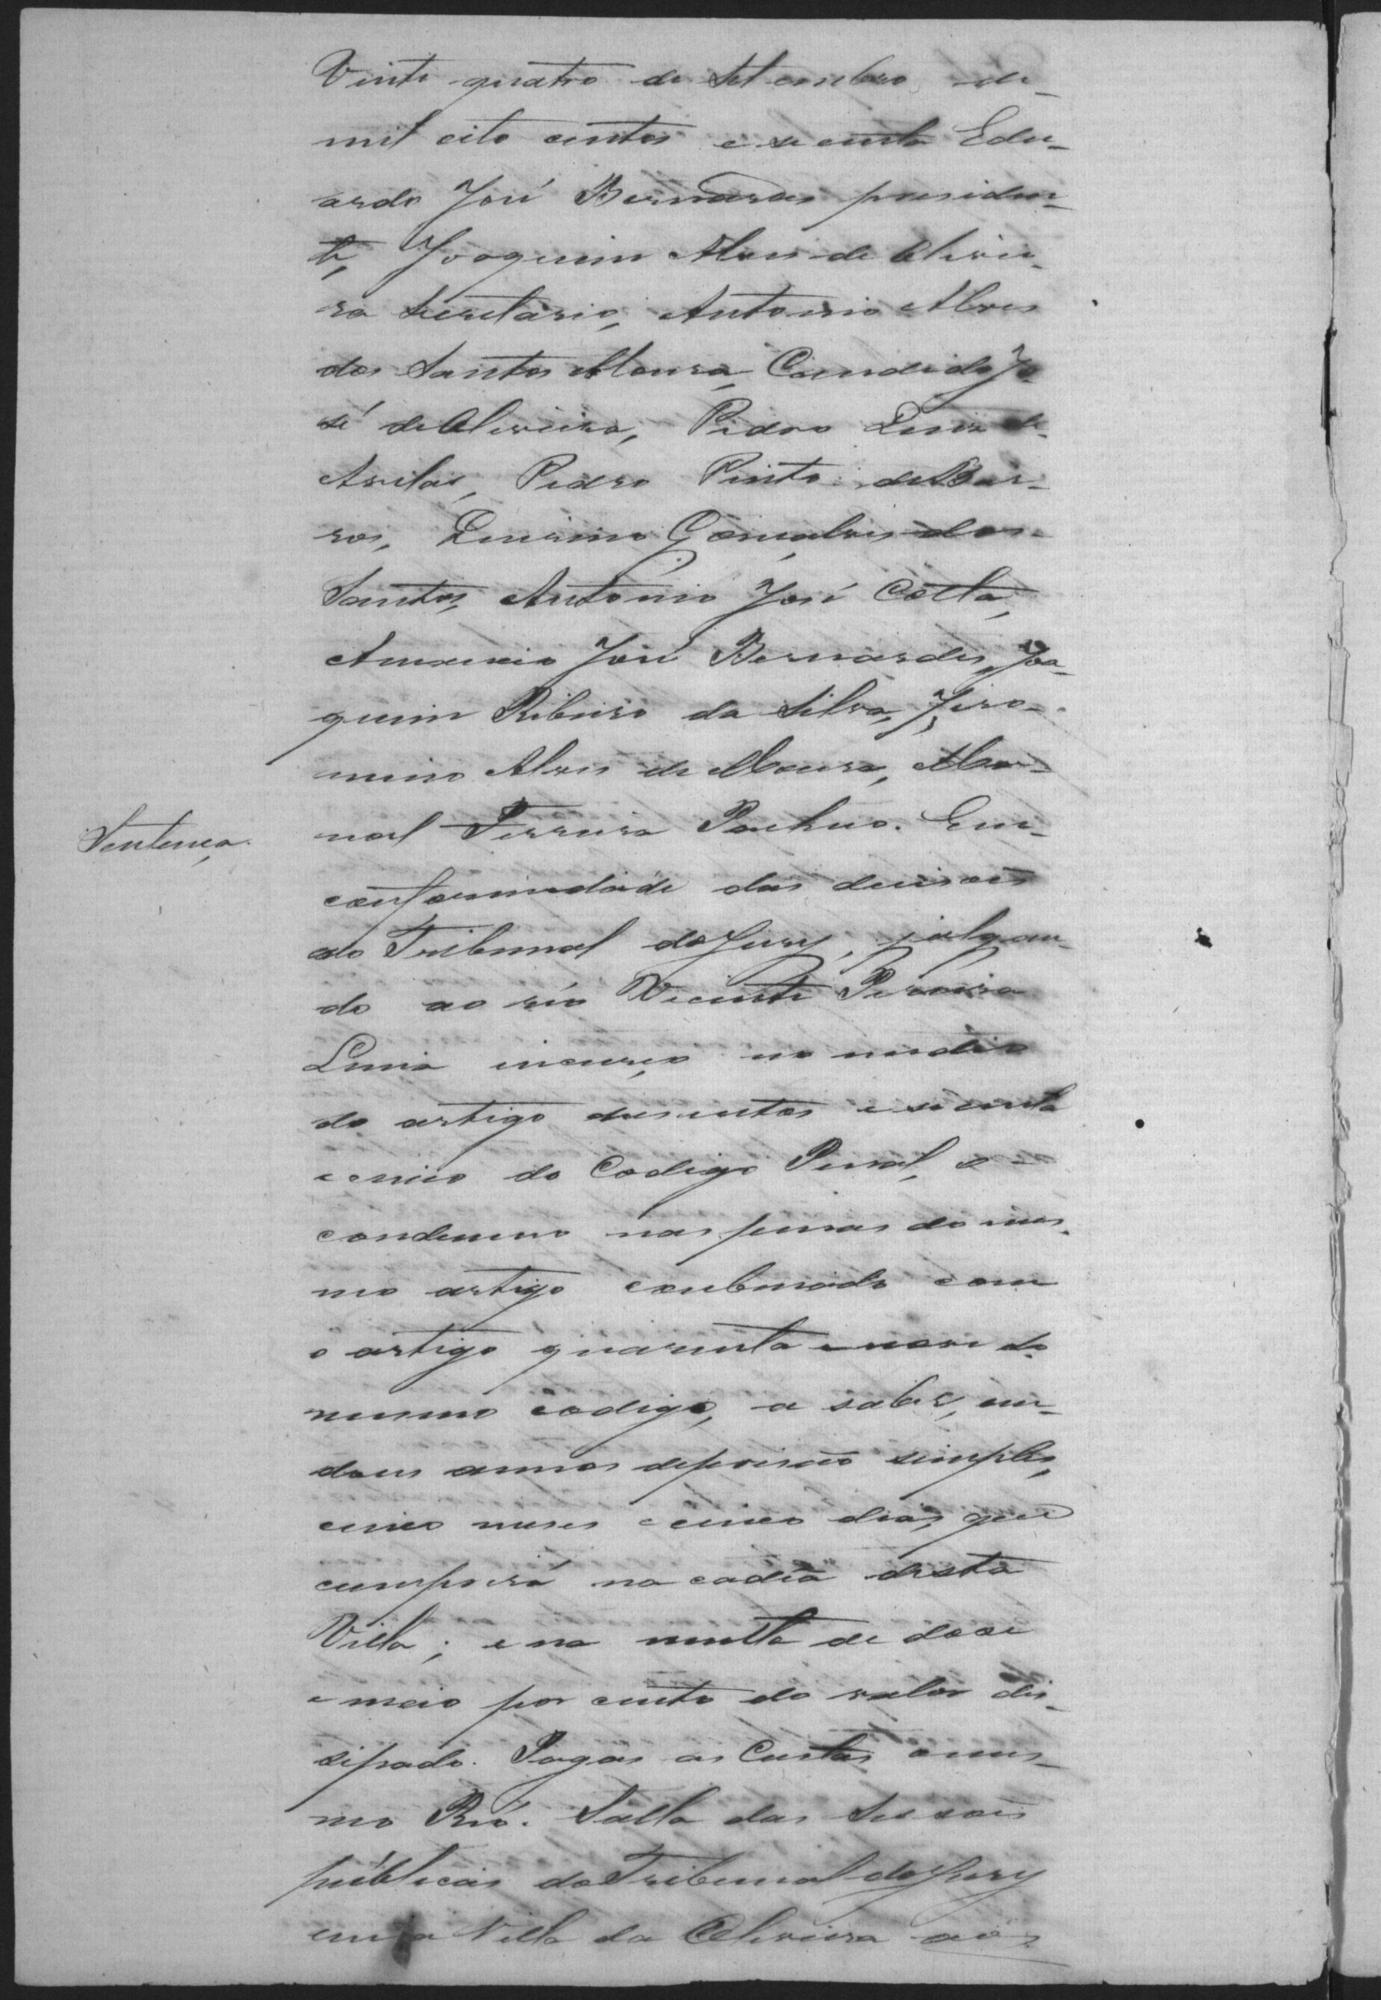 Vinte quatro de Setembro de
mil oito centos e secenta Edu-
ardo José Bernardes presiden-
te, Joaquim Alves de Olivei-
ra Secretario, Antonio Alves
dos Santos Moura, Candido Jo-
sé de Oliveira, Pedro Luiz de
Avilar, Pedro Pinto de Bar-
ros, Quirino Gonçalves dos
Santos, Antonio José Cotta,
Amancio José Bernardes, Joa-
quim Ribeiro da Silva, Jero-
nimo Alves de Moura, Ma-
noel Ferreira Pacheco. Em
Sentença.
conformidade das decisoes
do Tribunal do Jury, julgan-
do ao réo Vicente Pereira
Lima incurço no medio
do artigo dusentos e secenta
e cinco do Codigo Penal, o
condemno nas penas do mes-
mo artigo combinado com
o artigo quarenta e nove do
mesmo codigo, a saber, em
dous annos de prisão simples,
cinco meses e cinco dias, que
cumprirá na cadea desta
Villa; e na multa de doze
e meio por cento do valor dis-
sipado. Pagas as Custas o mes-
mo Réo. Salla das Sessoes
públicas do Tribunal do Jury
em a Villa da Oliveira aos